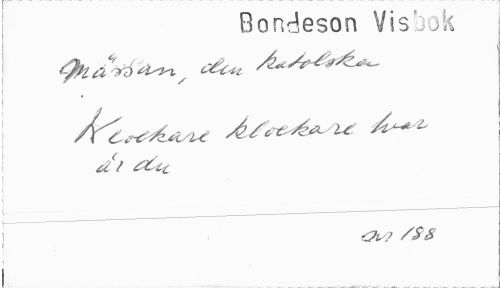 Bondeson Visbok
Mässan, den katolska
Klockare klockare hvar
är du
nr 188